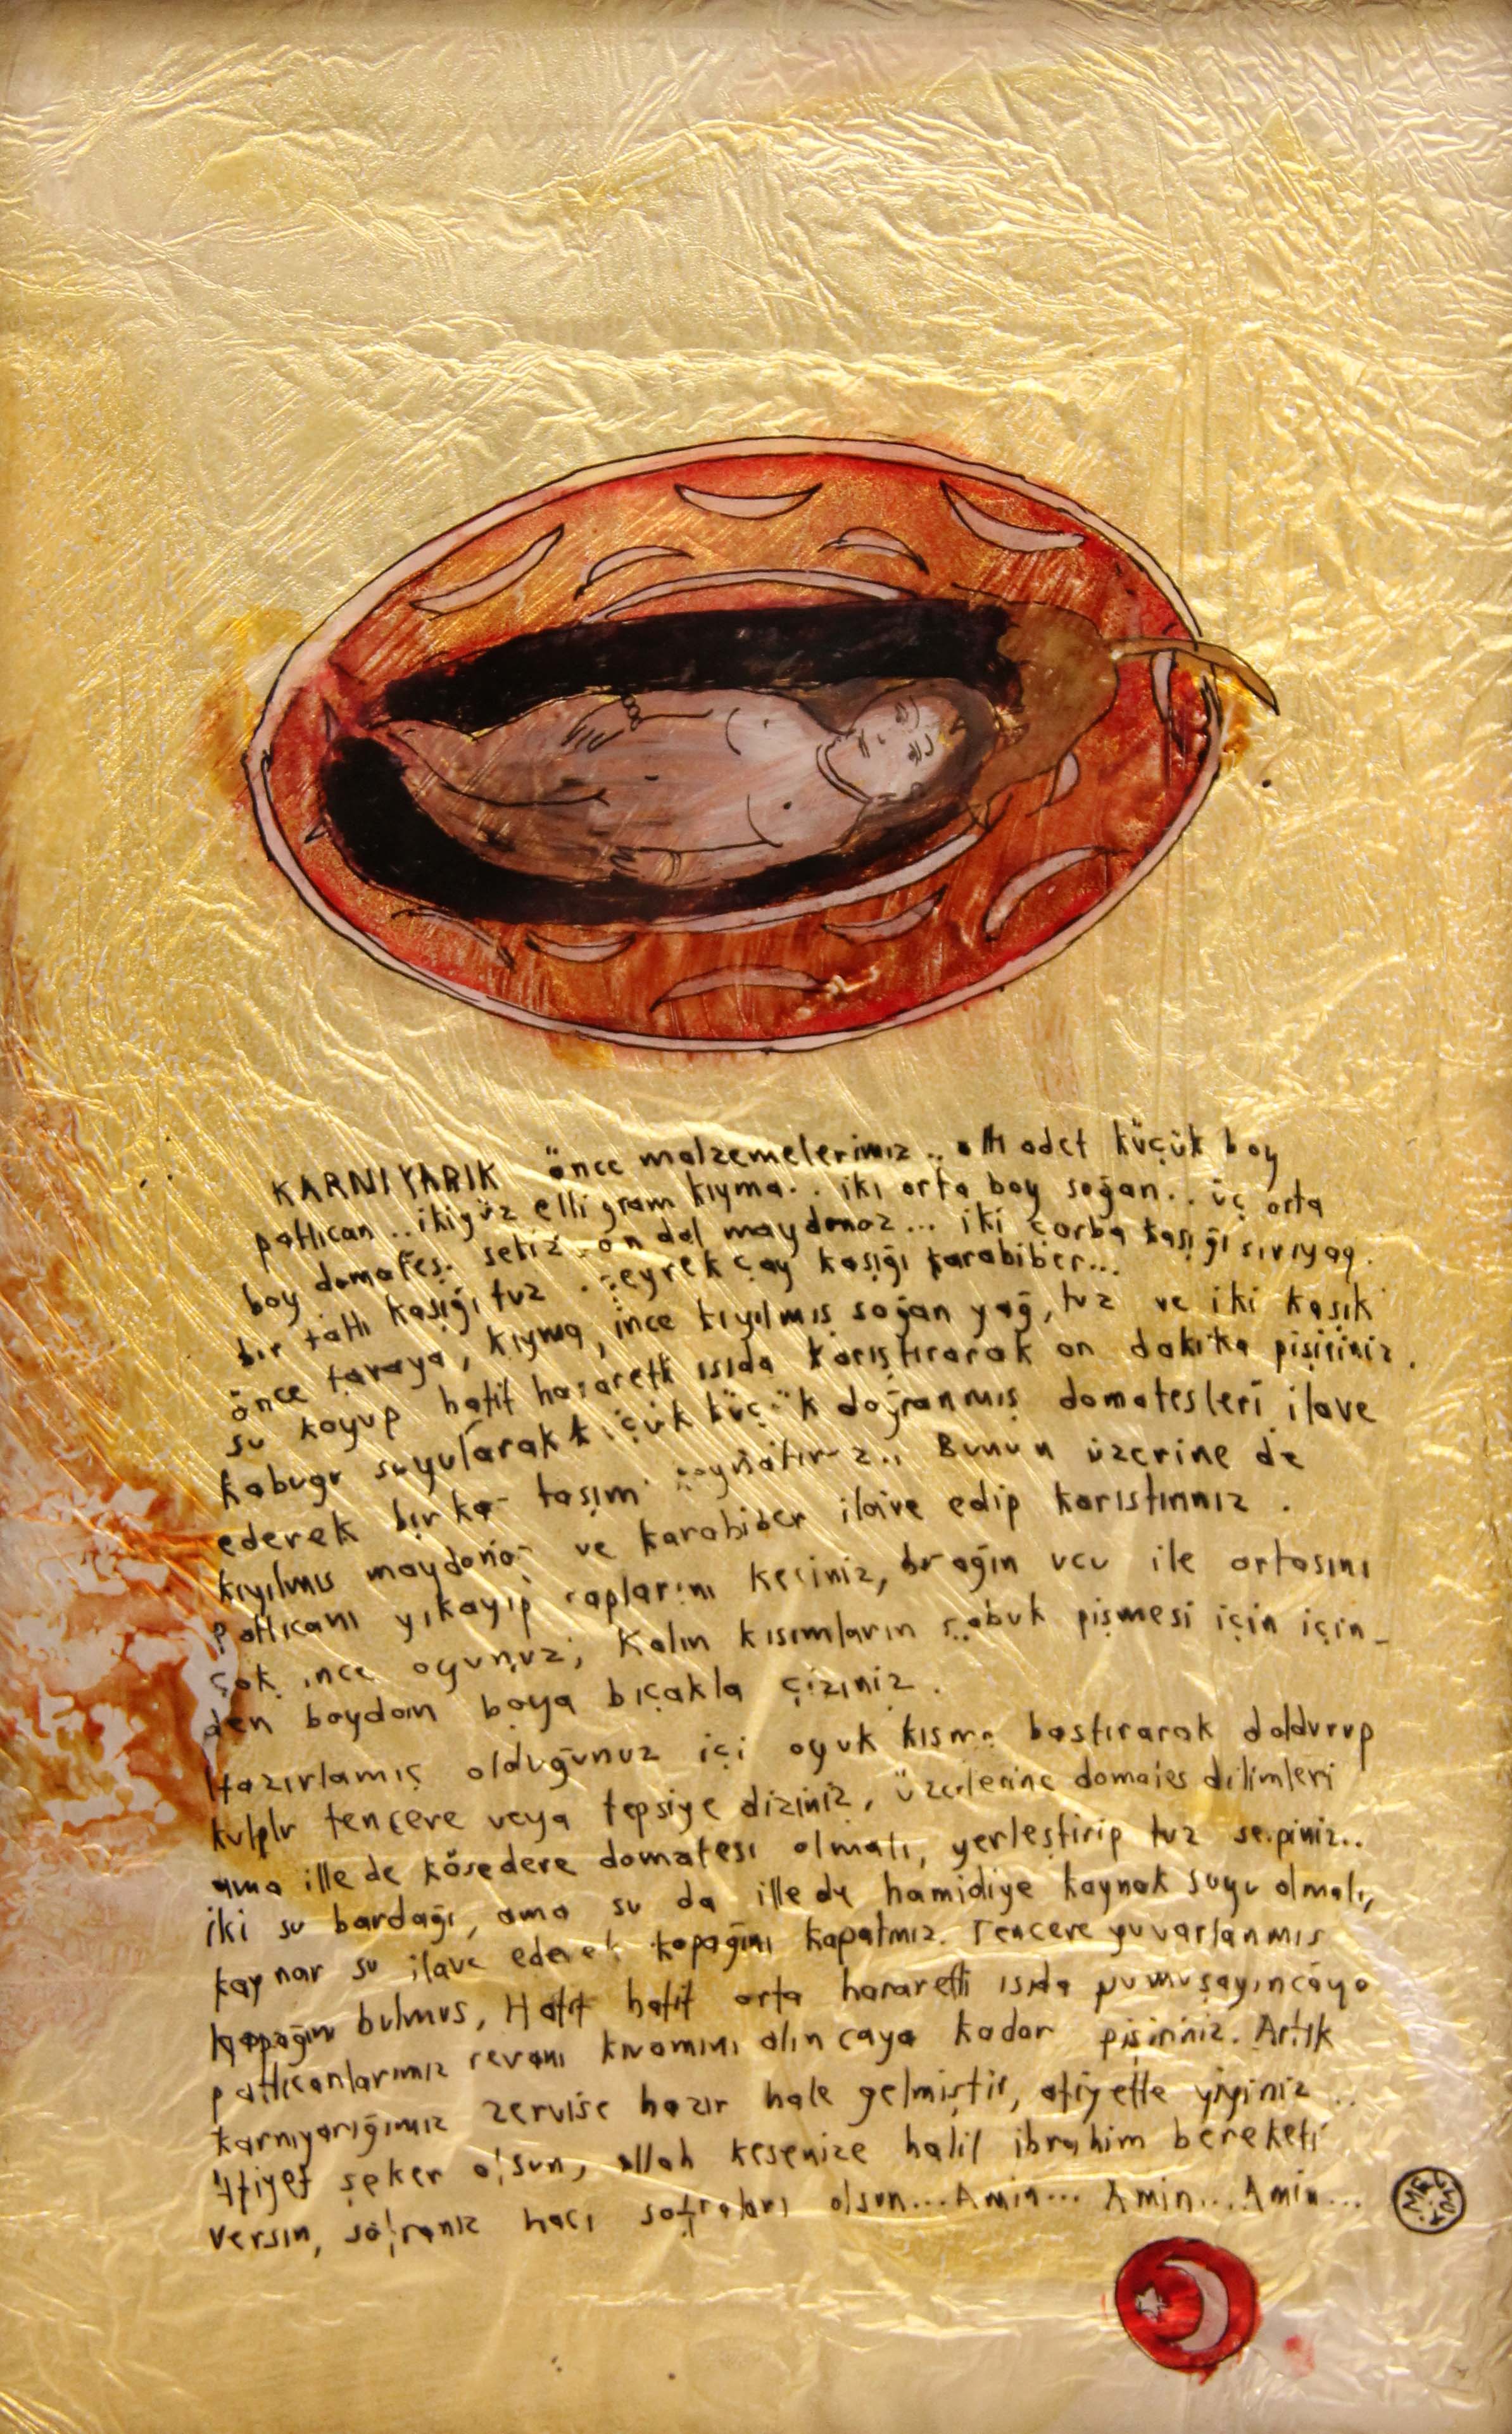 KARNIYARIK önce malzemelerimiz.. altı adet küçük boy
patlıcan.. ikiyüz elli gram kıyma.. iki orta boy soğan.. üç orta
boy domates. sekiz on dal maydonoz... iki çorba kaşığı sıvıyağ.
bir tatlı kaşığı tuz . çeyrek çay kaşığı karabiber...
önce tavaya, kıyma, ince kıyılmış soğan yağ, tuz ve iki kaşık
su koyup hafif hararetli ısıda karıştırarak on dakika pişiriniz.
kabugu soyularak küçük küçük doğranmış domatesleri ilave
ederek birkaç taşım kaynatınız.. Bunun üzerine de
kıyılmıs maydonoz ve karabiber ilave edip karıstırınız .
patlıcanı yıkayıp saplarını kesiniz, bıçağın ucu ile ortasını
çok ince oyunuz; Kalın kısımların çabuk pişmesi için için-
den boydan boya bıçakla çiziniz .
Hazırlamış olduğunuz içi oyuk kısma bastırarak doldurup
kulplu tencere veya tepsiye diziniz, üzerlerine domates dilimleri
ama illede kösedere domatesi olmalı, yerleştirip tuz serpiniz..
iki su bardağı, ama su da illede hamidiye kaynak suyu olmalı,
kaynar su ilave ederek kapağını kapatınız. Tencere yuvarlanmıs
kapağını bulmus, Hafif hafif orta hararetli ısıda yumuşayıncaya
patlıcanlarımız revanı kıvamını alıncaya kadar pişiriniz. Artık
karnıyarığımız servise hazır hale gelmiştir, afiyetle yiyiniz ..
Afiyet şeker olsun, allah kesenize halil ibrahim bereketi
versin, sofranız hacı sofraları olsun... Amin... Amin... Amin...